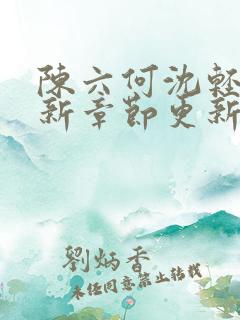 陳六何沈輕
新章節更新
劉炳香
未经同意禁止转载